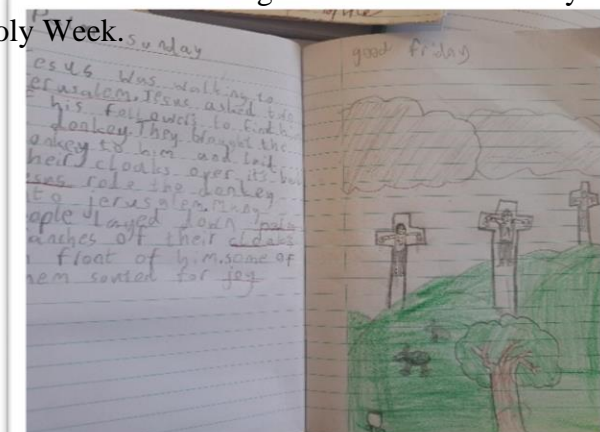 oly Week.
Sunday
esus was walking to
erusalem. Jesus asked two
his followers to find him
donkey. They brought the
onkey to him and laid
heir cloaks over its back
esus rode the donkey
to jerusalem. Many
ople layed down palm
anches of their cloaks
front of him. some of
hem for joy
good friday